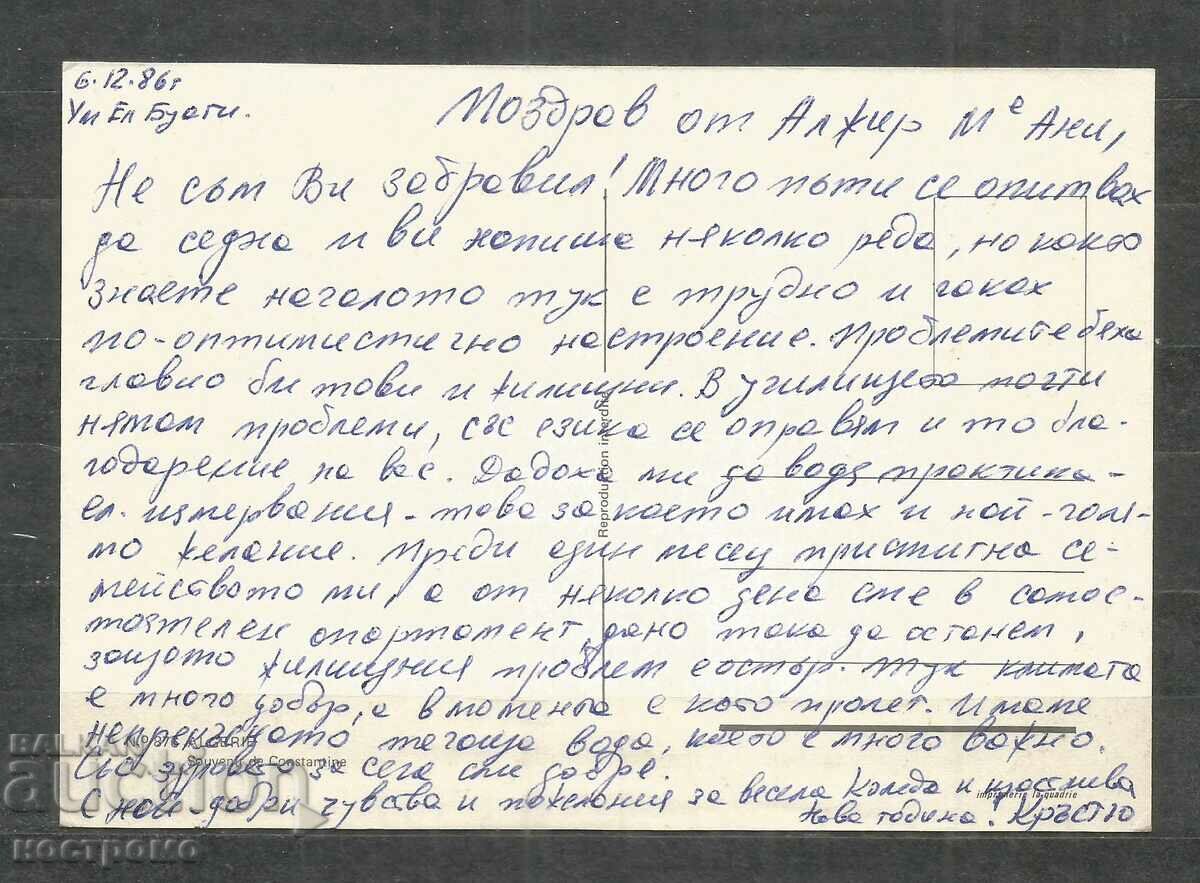 6.12.86г
Ум Ел Буаги.
Поздрав от Алжир Mᵉ Ани,
Не съм Ви забравил! Много пъти се опитвах
да седна и Ви напиша няколко реда, но както
знаете началото тук е трудно и чаках
по-оптимистично настроение. Проблемите бяха
главно битови и жилищни. В училището почти
нямам проблеми, със езика се оправям и то бла-
годарение на вас. Дадоха ми да водя практика-
ел. измервания - това за което имах и най-голя-
мо желание. Преди един месец пристигна се-
мейството ми, а от няколко дена сме в самос-
тоятелен апартамент, дано така да останем,
защото жилищния проблем е остър. Тук климата
е много добър, а в момента е като пролет. Имаме
непрекъснато течаща вода, което е много важно.
Със здравето за сега сме добре.
С най-добри чувства и пожелания за весела Коледа и щастлива
Нова година! Кръстю
Reproduction interdite
Nº 376 ALGERIE
Souvenir de Constantine
imprimerie la quadrie
BALKAN
auction
костромо